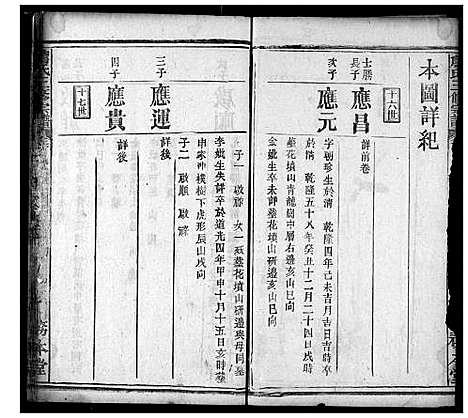 本圖詳紀
十六世
士勝
長子
應昌
詳前卷
次子
應元
字朝珍生於清乾隆四年己未吉月吉日吉時卒
於清乾隆五十八年癸丑十二月二十四日戌時
葬花墳山青龍樹中層右邊亥山巳向
金𡚱生卒未詳葬花墳山研邊亥山巳向
子一啟
女一
葬花墳山研邊與母同
三子
應運
李𡚱生失詳卒於道光四年甲申十月十五亥時葬
申家沖樸樹下虎形辰山戌向
子二啟順啟
詳後
四子
應貴
詳後
十七世
務本堂